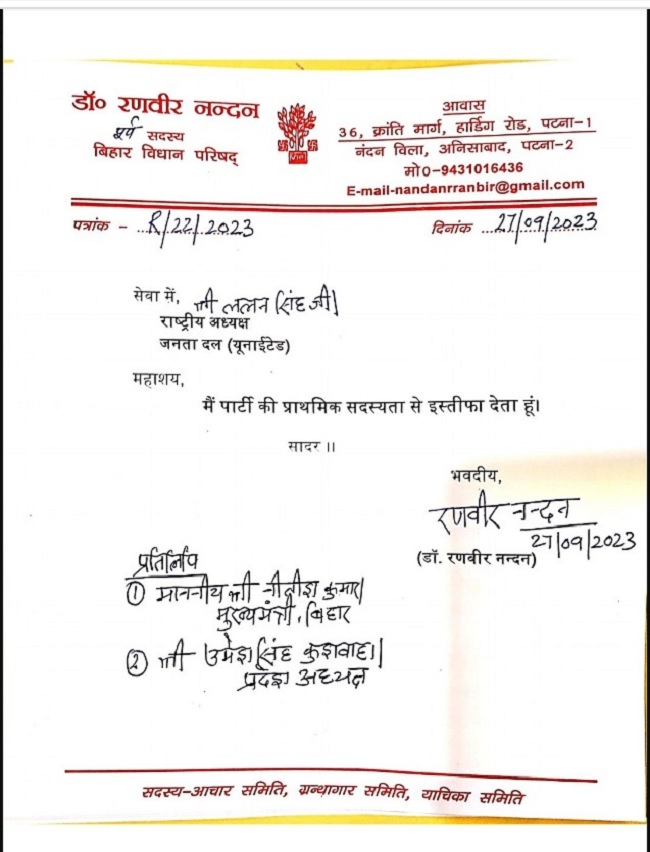 डॉ० रणवीर नन्दन
पूर्व सदस्य
बिहार विधान परिषद्
आवास
36, क्रांति मार्ग, हार्डिंग रोड, पटना-1
नंदन विला, अनिसाबाद, पटना-2
मो०-9431016436
E-mail-nandanrranbir@gmail.com
पत्रांक - ...R/22/2023
दिनांक ...27/09/2023
सेवा में, श्री ललन सिंह जी।
राष्ट्रीय अध्यक्ष
जनता दल (यूनाईटेड)
महाशय,
मैं पार्टी की प्राथमिक सदस्यता से इस्तीफा देता हूं।
सादर ।।
भवदीय,
रणवीर नन्दन
27/09/2023
(डॉ. रणवीर नन्दन)
प्रतिलिपि
① माननीय श्री नीतीश कुमार।
मुख्यमंत्री, बिहार
② श्री उमेश सिंह कुशवाहा।
प्रदेश अध्यक्ष
सदस्य-आचार समिति, ग्रन्थागार समिति, याचिका समिति